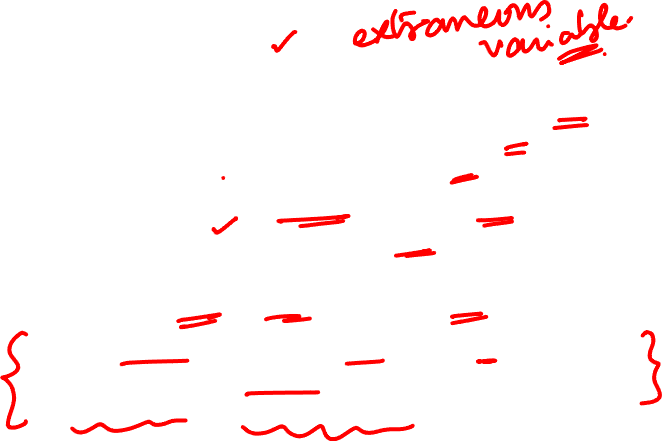 extraneous
variable.